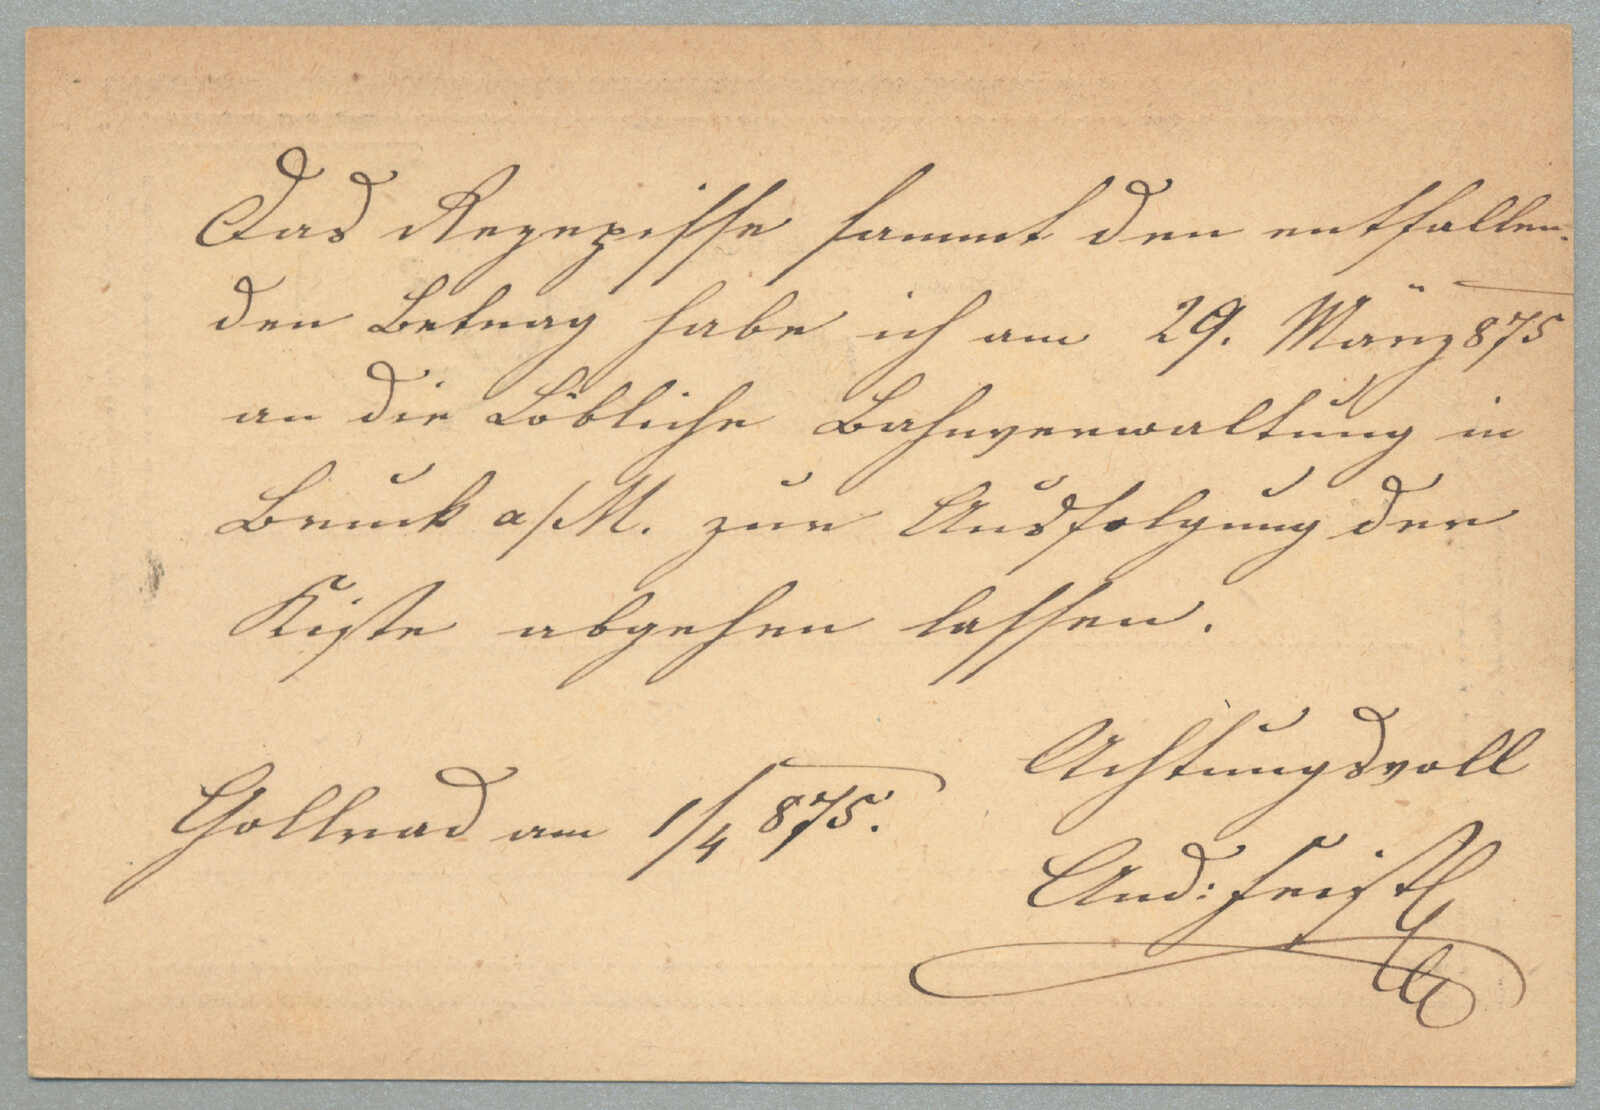 Das Rezepisse sammt den entfallen-
den Betrag habe ich am 29. März 875
an die Löbliche Bahnverwaltung in
Bruck a/M. zur Ausfolgung der
Kiste abgehen lassen.
Achtungsvoll
Gollrad am 1/4 875.
And: Feistl